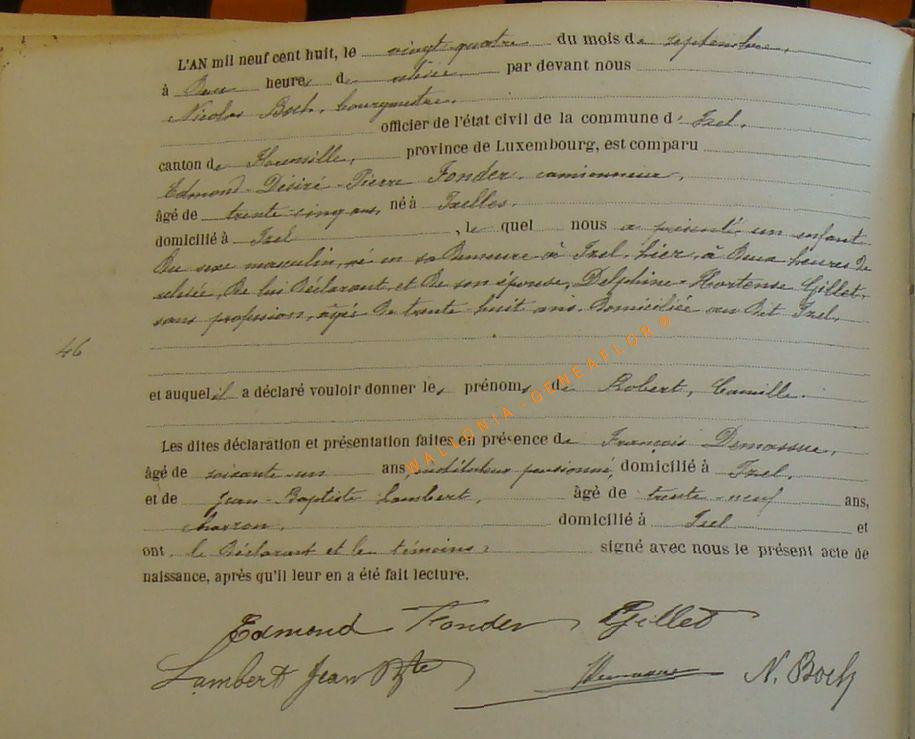 L'AN mil neuf cent huit, le vingt quatre du mois de septembre,
à heures de relevée par devant nous
Nicolas Boch, bourgmestre,
officier de l'état civil de la commune d'Izel,
canton de Florenville, province de Luxembourg, est comparu
Edmond-Désiré-Pierre Fonder, camionneur,
âgé de trente cinq ans, né à Ixelles,
domicilié à Izel, le quel nous a présenté un enfant
du sexe masculin, né en sa demeure à Izel, hier, à deux heures de
relevée, de lui déclarant, et de son épouse, Delphine-Hortense Gillet,
sans profession, âgée de trente huit ans, domiciliée au dit Izel,
46
et auquel il a déclaré vouloir donner les prénoms de Robert, Camille.
Les dites déclaration et présentation faites en présence de François
âgé de soixante un ans, instituteur pensionné, domicilié à Izel,
et de Jean-Baptiste Lambert, âgé de trente-neuf ans,
charron, domicilié à Izel et
ont le déclarant et les témoins signé avec nous le présent acte de
naissance, après qu'il leur en a été fait lecture.
Edmond Fonder Gillet
Lambert Jean Bte N. Boch
WALLONIA-GENEAFLOR®